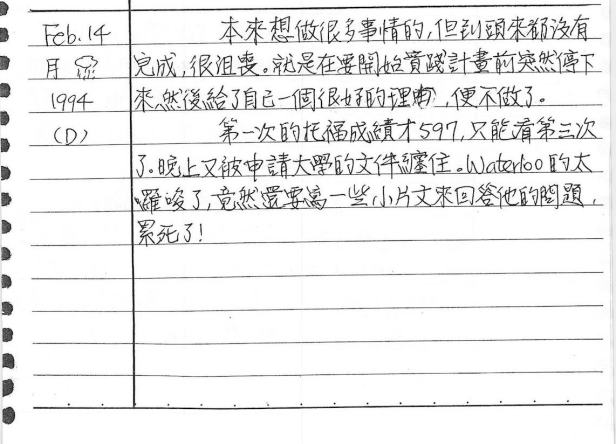 Feb. 14
月
1994
(D)
本來想做很多事情的,但到頭來都沒有
完成,很沮喪。就是在要開始實踐計畫前突然停下
來,然後給了自己一個很好的理由,便不做了。
第一次的托福成績才597,只能看第三次
了。晚上又被申請大學的文件纏住。Waterloo的太
囉唆了,竟然還要寫一些小片文來回答他的問題,
累死了!